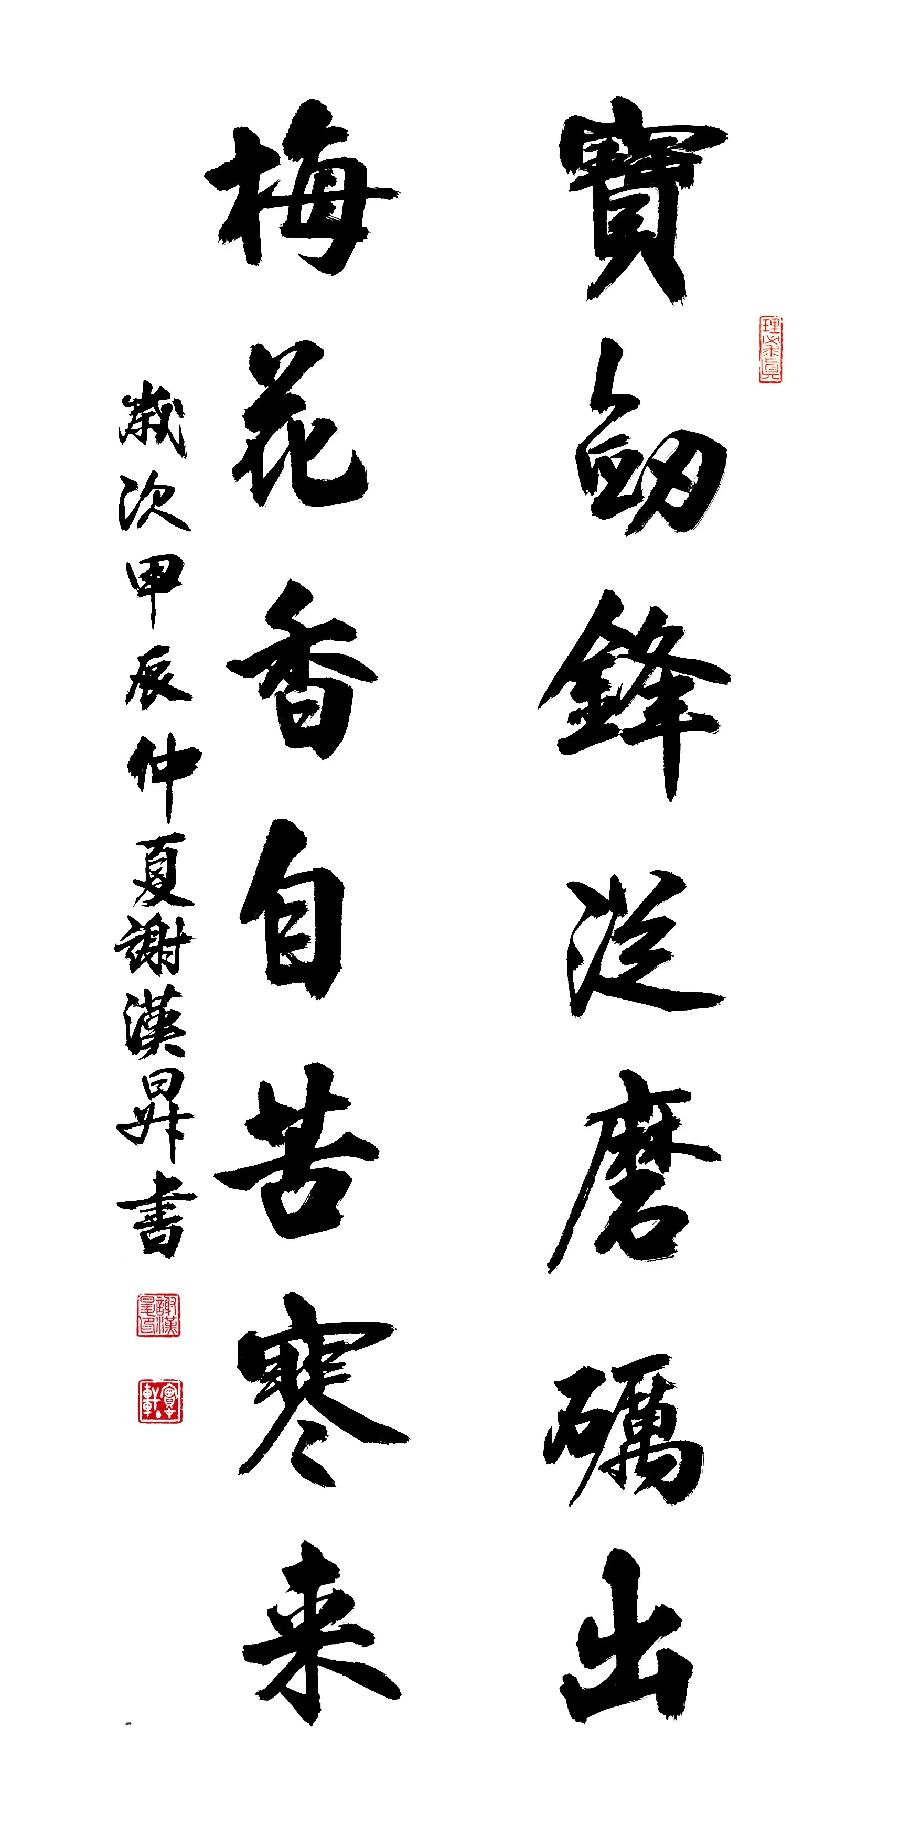 寶劍鋒從磨礪出
梅花香自苦寒来
歲次甲辰仲夏謝漢昇書